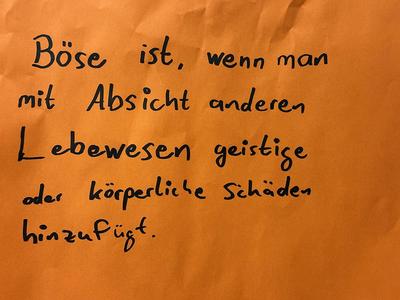 Böse ist, wenn man
mit Absicht anderen
Lebewesen geistige
oder körperliche Schäden
hinzufügt.